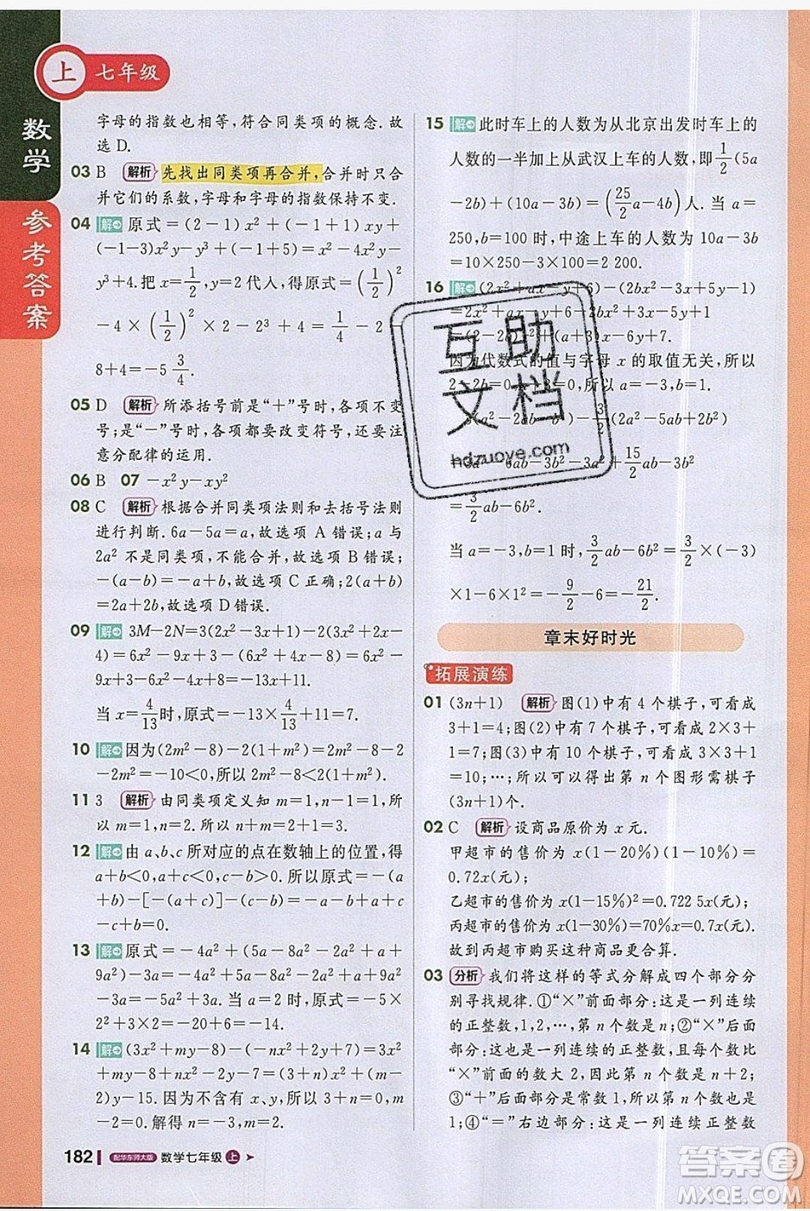 上 七年级
数学
参考答案
字母的指数也相等,符合同类项的概念.故
选 D.
03 B 解析 先找出同类项再合并,合并时只合
并它们的系数,字母和字母的指数保持不变.
04 解 原式=(2-1)x²+(-1-1+1)xy+
(-1-3)x²y-y³+(-1+5)=x²-xy-4x²y-
y³+4.把 x=1/2,y=2代入,得原式=(1/2)²
-4×(1/2)²×2-2³+4=1/4
8+4=-5 3/4.
05 D 解析 所添括号前是“+”号时,各项不变
号;是“-”号时,各项都要改变符号,还要注
意分配律的运用.
06 B 07 -x²y-xy²
08 C 解析 根据合并同类项法则和去括号法则
进行判断.6a-5a=a,故选项 A 错误;a 与
2a² 不是同类项,不能合并,故选项 B 错误;
-(a-b)=-a+b,故选项 C 正确;2(a+b)
=2a+2b,故选项 D 错误.
09 解 3M-2N=3(2x²-3x+1)-2(3x²+2x
-4)=6x²-9x+3-6x²-4x+8=-13x+11.
当 x=4/13时,原式=-13×4/13+11=7.
10 解 因为(2m²-8)-2(1+m²)=2m²-8-2
-2m²=-10<0,所以 2m²-8<2(1+m²).
11 3 解析 由同类项定义知 m=1,n-1=1,所
以 m=1,n=2.所以 m+n=2+1=3.
12 解 由 a、b、c 所对应的点在数轴上的位置,得
a+b<0,a+c<0,b-c>0.所以原式=-(a
+b)-[-(a+c)]-(b-c)=-a-b+a+c-b
+c=-2b+2c.
13 解 原式=-4a²+(5a-8a²-2a²+a+
9a²-3a)=-4a²+5a-8a²-2a²+a+9a²
-3a=-5a²+3a.当 a=2 时,原式=-5×
2²+3×2=-20+6=-14.
14 解 (3x²+my-8)-(-nx²+2y+7)=3x²
+my-8+nx²-2y-7=(3+n)x²+(m-
2)y-15.因为不含有 x、y,所以 m-2=0,3+
n=0.解得 n=-3,m=2.
182 配华东师大版 数学七年级 上
15 解 此时车上的人数为从北京出发时车上的
人数的一半加上从武汉上车的人数,即1/2(5a
-2b)+(10a-3b)=(25/2a-4b)人.当 a=
250,b=100 时,中途上车的人数为 10a-3b
=10×250-3×100=2 200.
16 解 (2x²+ax-y+6)-(2bx²-3x+5y-1)
=2x²+ax-y+6-2bx²+3x-5y+1
-6y+7.
因为代数式的值与字母 x 的取值无关,所以
-(2a²-5ab+2b²)
+15/2
=3/2ab-6b².
当 a=-3,b=1时,3/2ab-6b²=3/2×(-3)
×1-6×1²=-9/2-6=-21/2.
章末好时光
拓展演练
01 (3n+1) 解析 图(1)中有 4 个棋子,可看成
3+1=4;图(2)中有 7 个棋子,可看成 2×3+
1=7;图(3)中有 10 个棋子,可看成 3×3+1
=10;…;所以可以得出第 n 个图形需棋子
(3n+1)个.
02 C 解析 设商品原价为 x 元.
甲超市的售价为 x(1-20%)(1-10%)=
0.72x(元);
乙超市的售价为 x(1-15%)²=0.722 5x(元);
丙超市的售价为 x(1-30%)=70%x=0.7x(元).
故到丙超市购买更合算.
03 分析 我们将这样的等式分解成四个部分分
别寻找规律.①“×”前面部分:这是一列连续
的正整数,1,2,…,第 n 个数是 n;②“×”后面
部分:这是一列连续的正整数,每个数比
“×”前面的数大 2,因此,第 n 个数是 n+2;
③“+”后面部分:这是一列不变的数,都是 1;
④“=”右边部分:这是一列连续的正整数
互助
文档
hdzuoye.com
答案圈
MXQE.COM